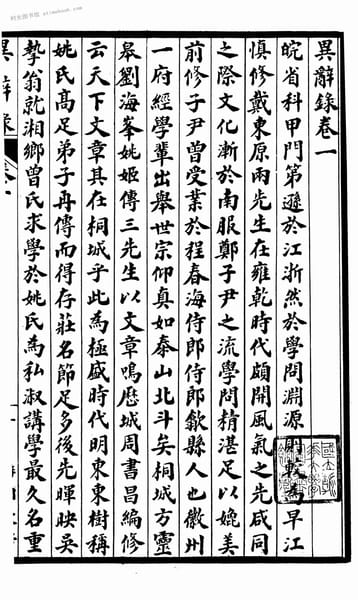 異辭錄卷一
皖省科甲門第遜於江浙然於學問淵源則較為早江
慎修戴東原兩先生在雍乾時代頗開風氣之先咸同
之際文化漸於南服鄭子尹之流學問精湛足以媲美
前修子尹曾受業於程春海侍郎侍郎歙縣人也徽州
一府經學輩出舉世宗仰真如泰山北斗矣桐城方靈
皋劉海峯姚姬傳三先生以文章鳴歷城周書昌編修
云天下文章其在桐城乎此為極盛時代明東東樹稱
姚氏高足弟子再傳而得存莊名節足多後先暉映吳
摯翁就湘鄉曾氏求學於姚氏為私淑講學最久名重
異辭錄
卷一
一